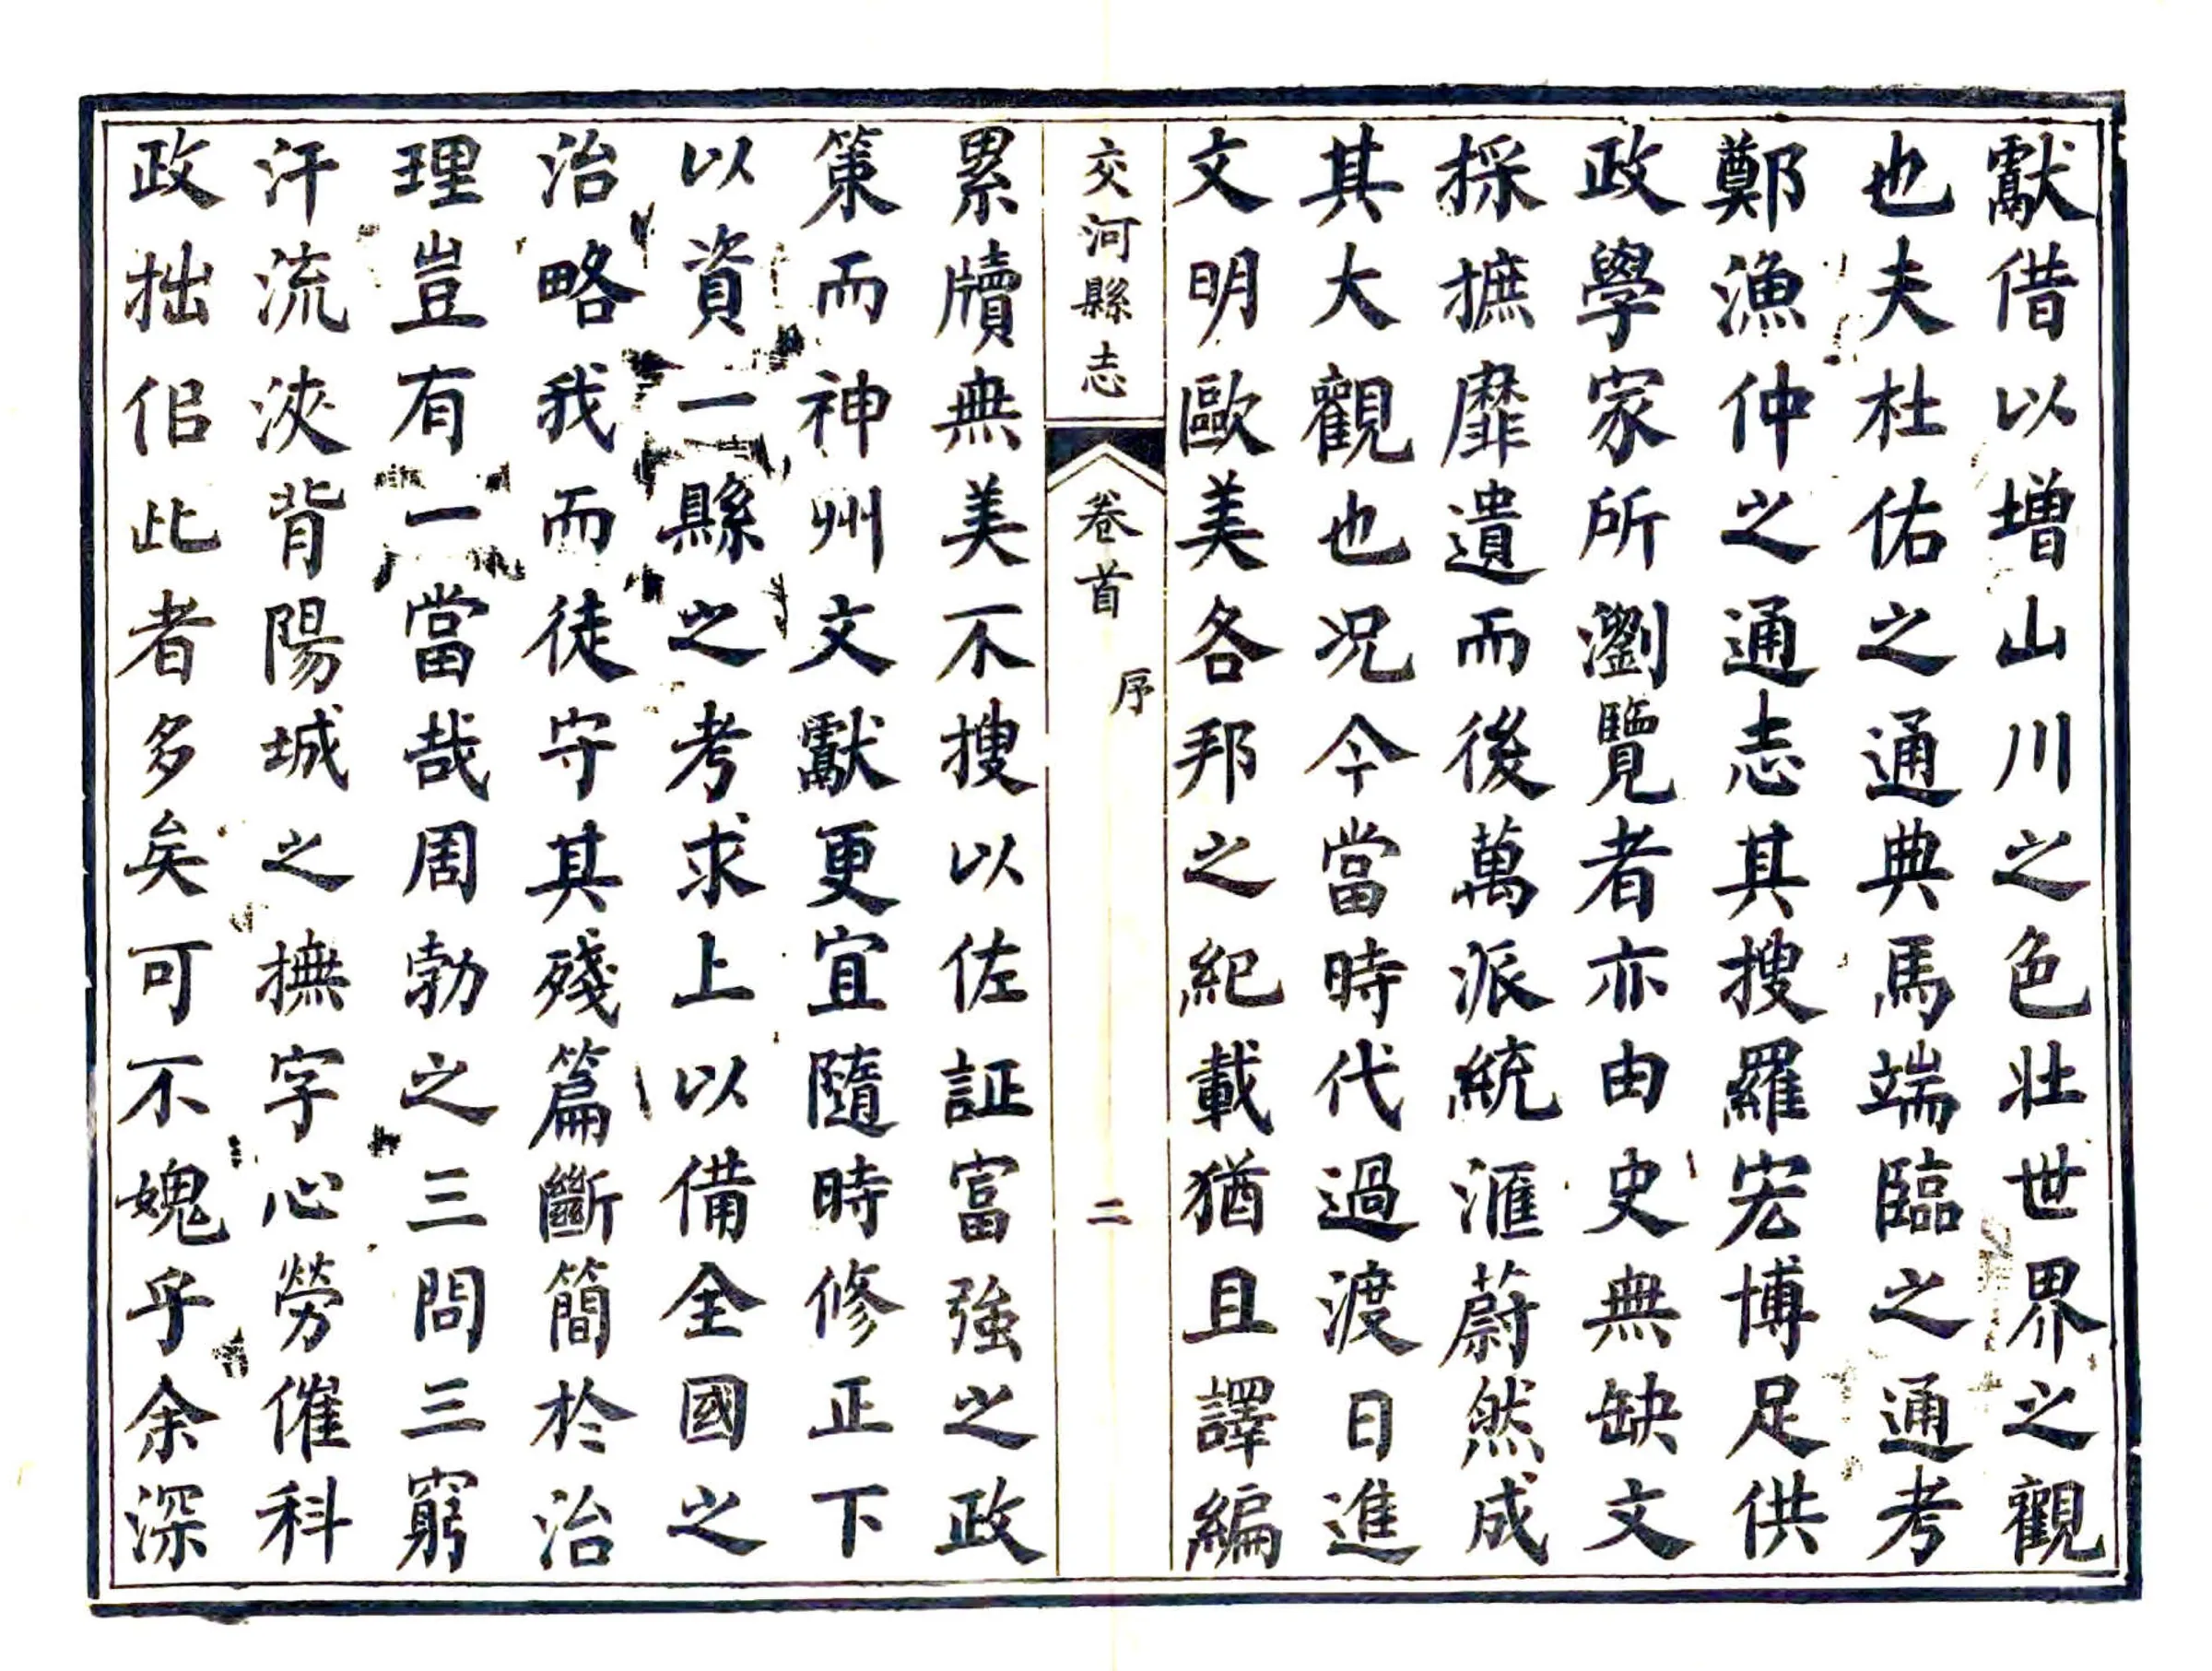 獻借以增山川之色壯世界之觀
也夫杜佑之通典馬端臨之通考
鄭漁仲之通志其搜羅宏博足供
政學家所瀏覽者亦由史無缺文
採摭靡遺而後萬派統滙蔚然成
其大觀也况今當時代過渡日進
文明歐美各邦之紀載猶且譯編
交河縣志
卷首
序
二
累牘無美不搜以佐証富強之政
策而神州文獻更宜隨時修正下
以資一縣之考求上以備全國之
治略我而徒守其殘篇斷簡於治
理豈有一當哉周勃之三問三窮
汗流浹背陽城之撫字心勞催科
政拙佀此者多矣可不媿乎余深